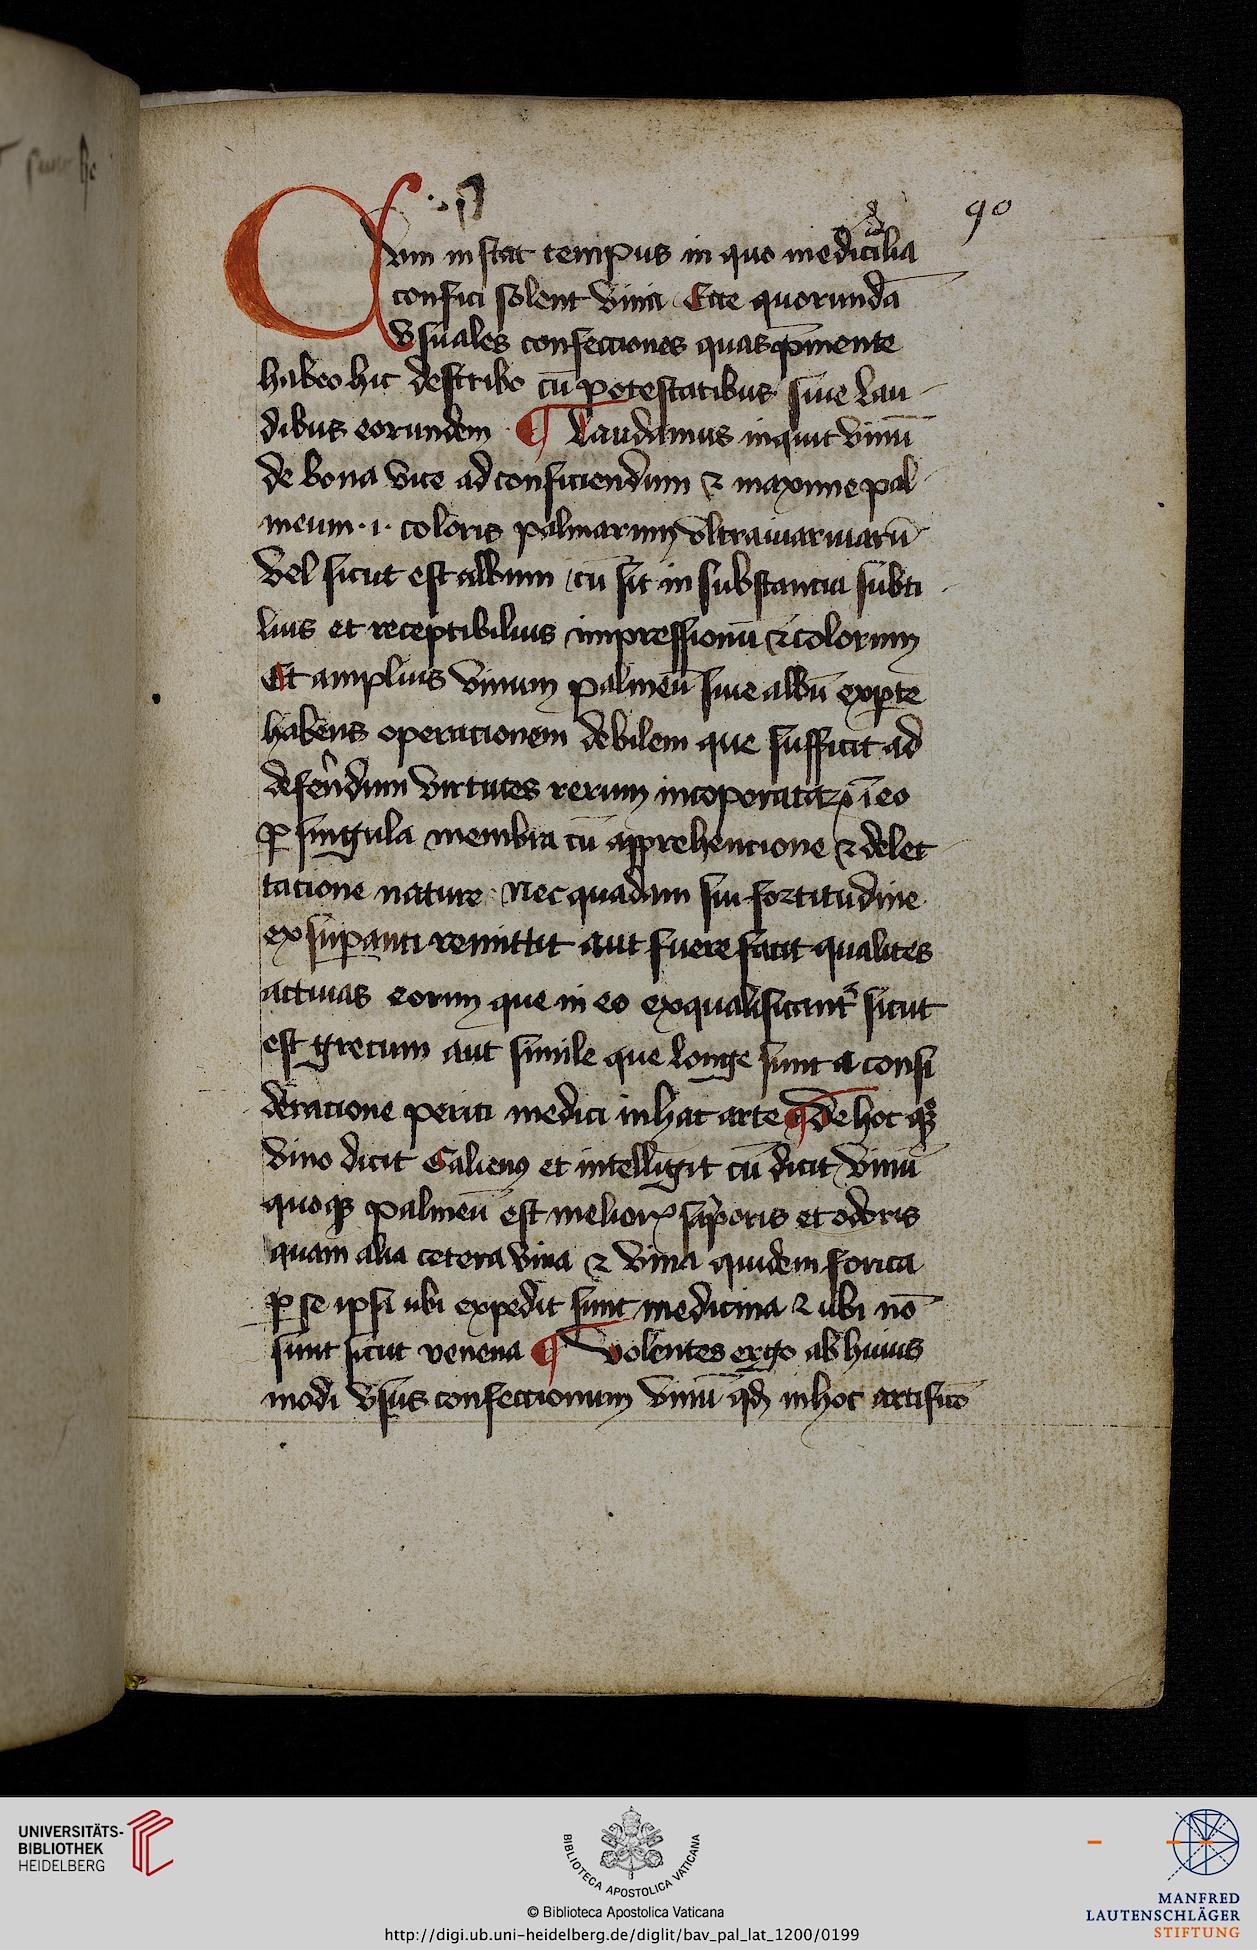 90
Cum instat tempus in quo medicīalia
confici solent vina Ecce quorundā
vsuales confecciones quas p̄mente
habeo hic describo cū potestatibus siue lau
dibus eorundem ¶ Laudamus inquit vinū
de bona vite ad conficiendum ⁊ maxime pal
meum ·i· coloris palmarum vltramarinarū
Vel sicut est album cū sit in substancia subti
lius et receptibilius impressionū ⁊ colorum
Et amplius vinum palmeū siue albū exp̱te
habens operacionem debilem que sufficit ad
defendum virtutes rerum incorporatarꝝ ī eo
ꝑ singula membra cū apprehencione ⁊ delec
tacione nature Nec quadam sui fortitudine
exsuꝑanti remittit aut fuere facit qualites
actiuas eorum que in eo exqualificant᷑ sicut
est grecum aut simile que longe sunt a consi
deracione periti medici in hac arte ¶ De hoc qꝫ
vino dicit Galienꝰ et intelligit cū dicit vinū
quoqꝫ palmeū est meliorꝭ saporis et odoris
quam alia cetera vina ⁊ vina quidem forcia
ꝑ se ipsi ubi expedit sunt medicina ⁊ ubi nō
sunt sicut venena ¶ Volentes ergo ab huius
modi vsus confeccionum vinū qd̛ in hoc artificō
UNIVERSITÄTS-
BIBLIOTHEK
HEIDELBERG
BIBLIOTECA APOSTOLICA VATICANA
© Biblioteca Apostolica Vaticana
http://digi.ub.uni-heidelberg.de/diglit/bav_pal_lat_1200/0199
MANFRED
LAUTENSCHLÄGER
STIFTUNG